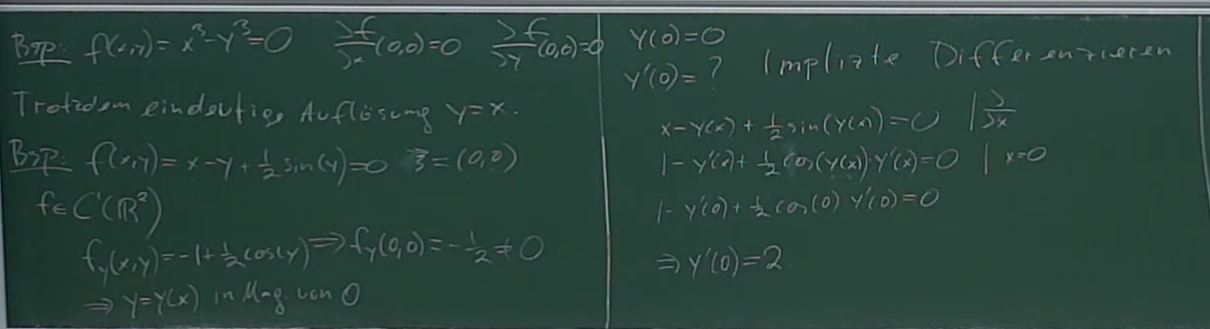 Bsp: f(x,y) = x³-y³=0 ∂f/∂x (0,0)=0 ∂f/∂y (0,0)=0
Trotzdem eindeutige Auflösung y=x.
Bsp: f(x,y) = x-y+½sin(y)=0 ξ⃗=(0,0)
f∈C¹(ℝ²)
f_y(x,y)=-1+½cos(y) ⇒ f_y(0,0)=-½≠0
⇒ y=y(x) in Umg. von 0
y(0)=0
y'(0)=? Implizite Differenzieren
x-y(x)+½sin(y(x))=0 | ∂/∂x
1-y'(x)+½cos(y(x))·y'(x)=0 | x=0
1-y'(0)+½cos(0) y'(0)=0
⇒ y'(0)=2.